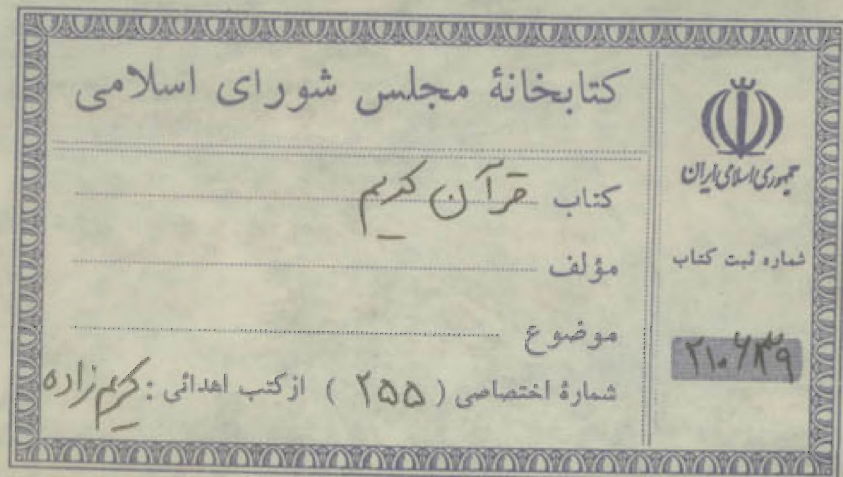 کتابخانهٔ مجلس شورای اسلامی
کتاب قرآن کریم
مؤلف
موضوع
شمارهٔ اختصاصی ( ۲۵۵ ) از کتب اهدائی : کریم‌زاده
جمهوری اسلامی ایران
شماره ثبت کتاب
۲۱۰۶۳۹